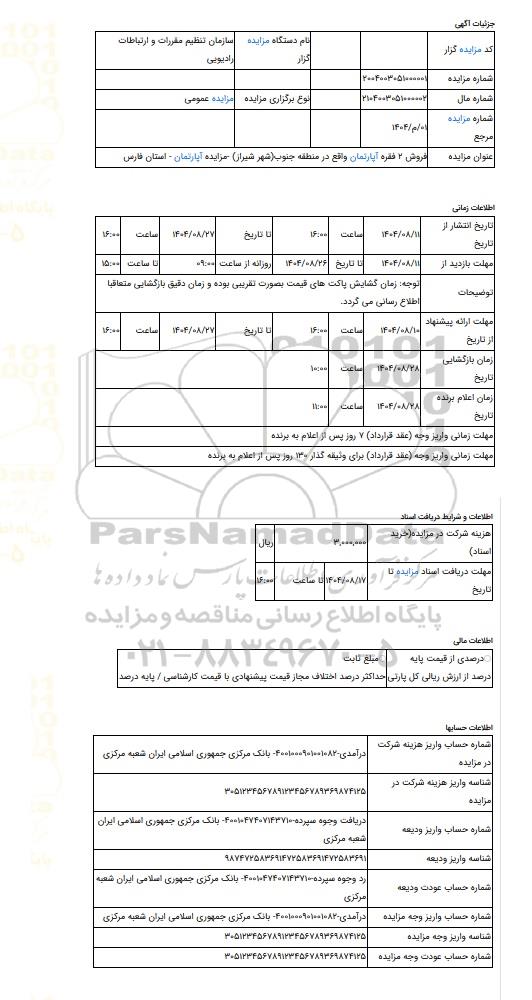 جزئیات آگهی
کد مزایده گزار
نام دستگاه مزایده گزار
سازمان تنظیم مقررات و ارتباطات رادیویی
شماره مزایده
۲۰۰۴۰۰۳۰۵۱۰۰۰۰۰۱
شماره مال
۲۱۰۴۰۰۳۰۵۱۰۰۰۰۰۲
نوع برگزاری مزایده
مزایده عمومی
شماره مزایده مرجع
۰۱/م/۱۴۰۴
عنوان مزایده
فروش ۲ فقره آپارتمان واقع در منطقه جنوب(شهر شیراز) -مزایده آپارتمان - استان فارس
اطلاعات زمانی
تاریخ انتشار از تاریخ ۱۴۰۴/۰۸/۱۱ ساعت ۱۶:۰۰ تا تاریخ ۱۴۰۴/۰۸/۲۷ ساعت ۱۶:۰۰
مهلت بازدید از ۱۴۰۴/۰۸/۱۱ تا تاریخ ۱۴۰۴/۰۸/۲۶ روزانه از ساعت ۰۹:۰۰ تا ساعت ۱۵:۰۰
توضیحات
توجه: زمان گشایش پاکت های قیمت بصورت تقریبی بوده و زمان دقیق بازگشایی متعاقبا
اطلاع رسانی می گردد.
مهلت ارائه پیشنهاد از تاریخ ۱۴۰۴/۰۸/۱۰ ساعت ۱۶:۰۰ تا تاریخ ۱۴۰۴/۰۸/۲۷ ساعت ۱۶:۰۰
زمان بازگشایی تاریخ ۱۴۰۴/۰۸/۲۸ ساعت ۱۰:۰۰
زمان اعلام برنده تاریخ ۱۴۰۴/۰۸/۲۸ ساعت ۱۱:۰۰
مهلت زمانی واریز وجه (عقد قرارداد) ۷ روز پس از اعلام به برنده
مهلت زمانی واریز وجه (عقد قرارداد) برای وثیقه گذار ۱۳۰ روز پس از اعلام به برنده
ParsNamadData
اطلاعات و شرایط دریافت اسناد
هزینه شرکت در مزایده(خرید اسناد) ۳,۰۰۰,۰۰۰ ریال
مهلت دریافت اسناد مزایده تا تاریخ ۱۴۰۴/۰۸/۱۷ تا ساعت ۱۶:۰۰
مرکز فرآوری اطلاعات پارس نماد داده ها
پایگاه اطلاع رسانی مناقصه و مزایده
۰۲۱-۸۸۳۴۹۶۷۰-۵
اطلاعات مالی
درصدی از قیمت پایه
مبلغ ثابت
درصد از ارزش ریالی کل پارتی
حداکثر درصد اختلاف مجاز قیمت پیشنهادی با قیمت کارشناسی / پایه درصد
اطلاعات حسابها
شماره حساب واریز هزینه شرکت در مزایده
درآمدی-۴۰۰۱۰۰۰۹۰۱۰۰۱۰۸۲- بانک مرکزی جمهوری اسلامی ایران شعبه مرکزی
شناسه واریز هزینه شرکت در مزایده
۳۰۵۱۲۳۴۵۶۷۸۹۱۲۳۴۵۶۷۸۹۳۶۹۸۷۴۱۲۵
شماره حساب واریز ودیعه
دریافت وجوه سپرده-۴۰۰۱۰۴۷۴۰۷۱۴۳۷۱۰- بانک مرکزی جمهوری اسلامی ایران
شعبه مرکزی
شناسه واریز ودیعه
۹۸۷۴۷۲۵۸۳۶۹۱۴۷۲۵۸۳۶۹۱۴۷۲۵۸۳۶۹۱
شماره حساب عودت ودیعه
رد وجوه سپرده-۴۰۰۱۰۴۷۴۰۷۱۴۳۷۱۰- بانک مرکزی جمهوری اسلامی ایران شعبه
مرکزی
شماره حساب واریز وجه مزایده
درآمدی-۴۰۰۱۰۰۰۹۰۱۰۰۱۰۸۲- بانک مرکزی جمهوری اسلامی ایران شعبه مرکزی
شناسه واریز وجه مزایده
۳۰۵۱۲۳۴۵۶۷۸۹۱۲۳۴۵۶۷۸۹۳۶۹۸۷۴۱۲۵
شماره حساب عودت وجه مزایده
۳۰۵۱۲۳۴۵۶۷۸۹۱۲۳۴۵۶۷۸۹۳۶۹۸۷۴۱۲۵